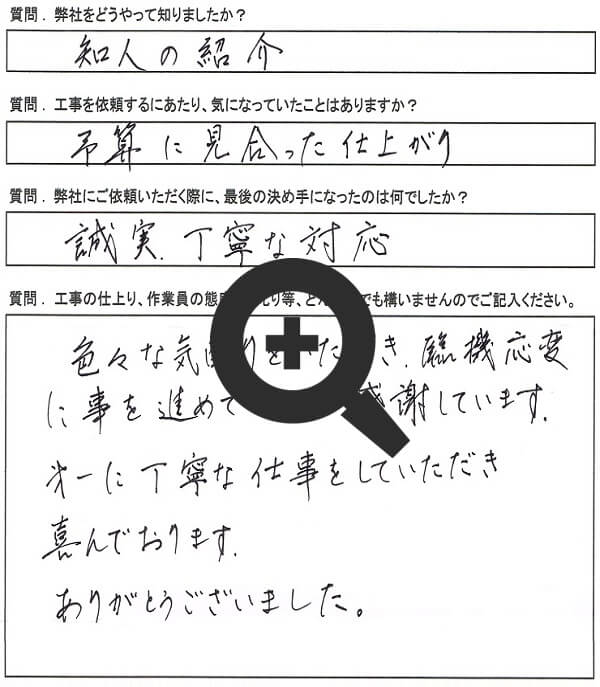 質問．弊社をどうやって知りましたか？
知人の紹介
質問．工事を依頼するにあたり、気になっていたことはありますか？
予算に見合った仕上がり
質問．弊社にご依頼いただく際に、最後の決め手になったのは何でしたか？
誠実．丁寧な対応
質問．工事の仕上り、作業員の態 でも構いませんのでご記入ください。
色々な気 き．臨機応変
に事を進めて 感謝しています．
才一に丁寧な仕事をしていただき
喜んでおります．
ありがとうございました。